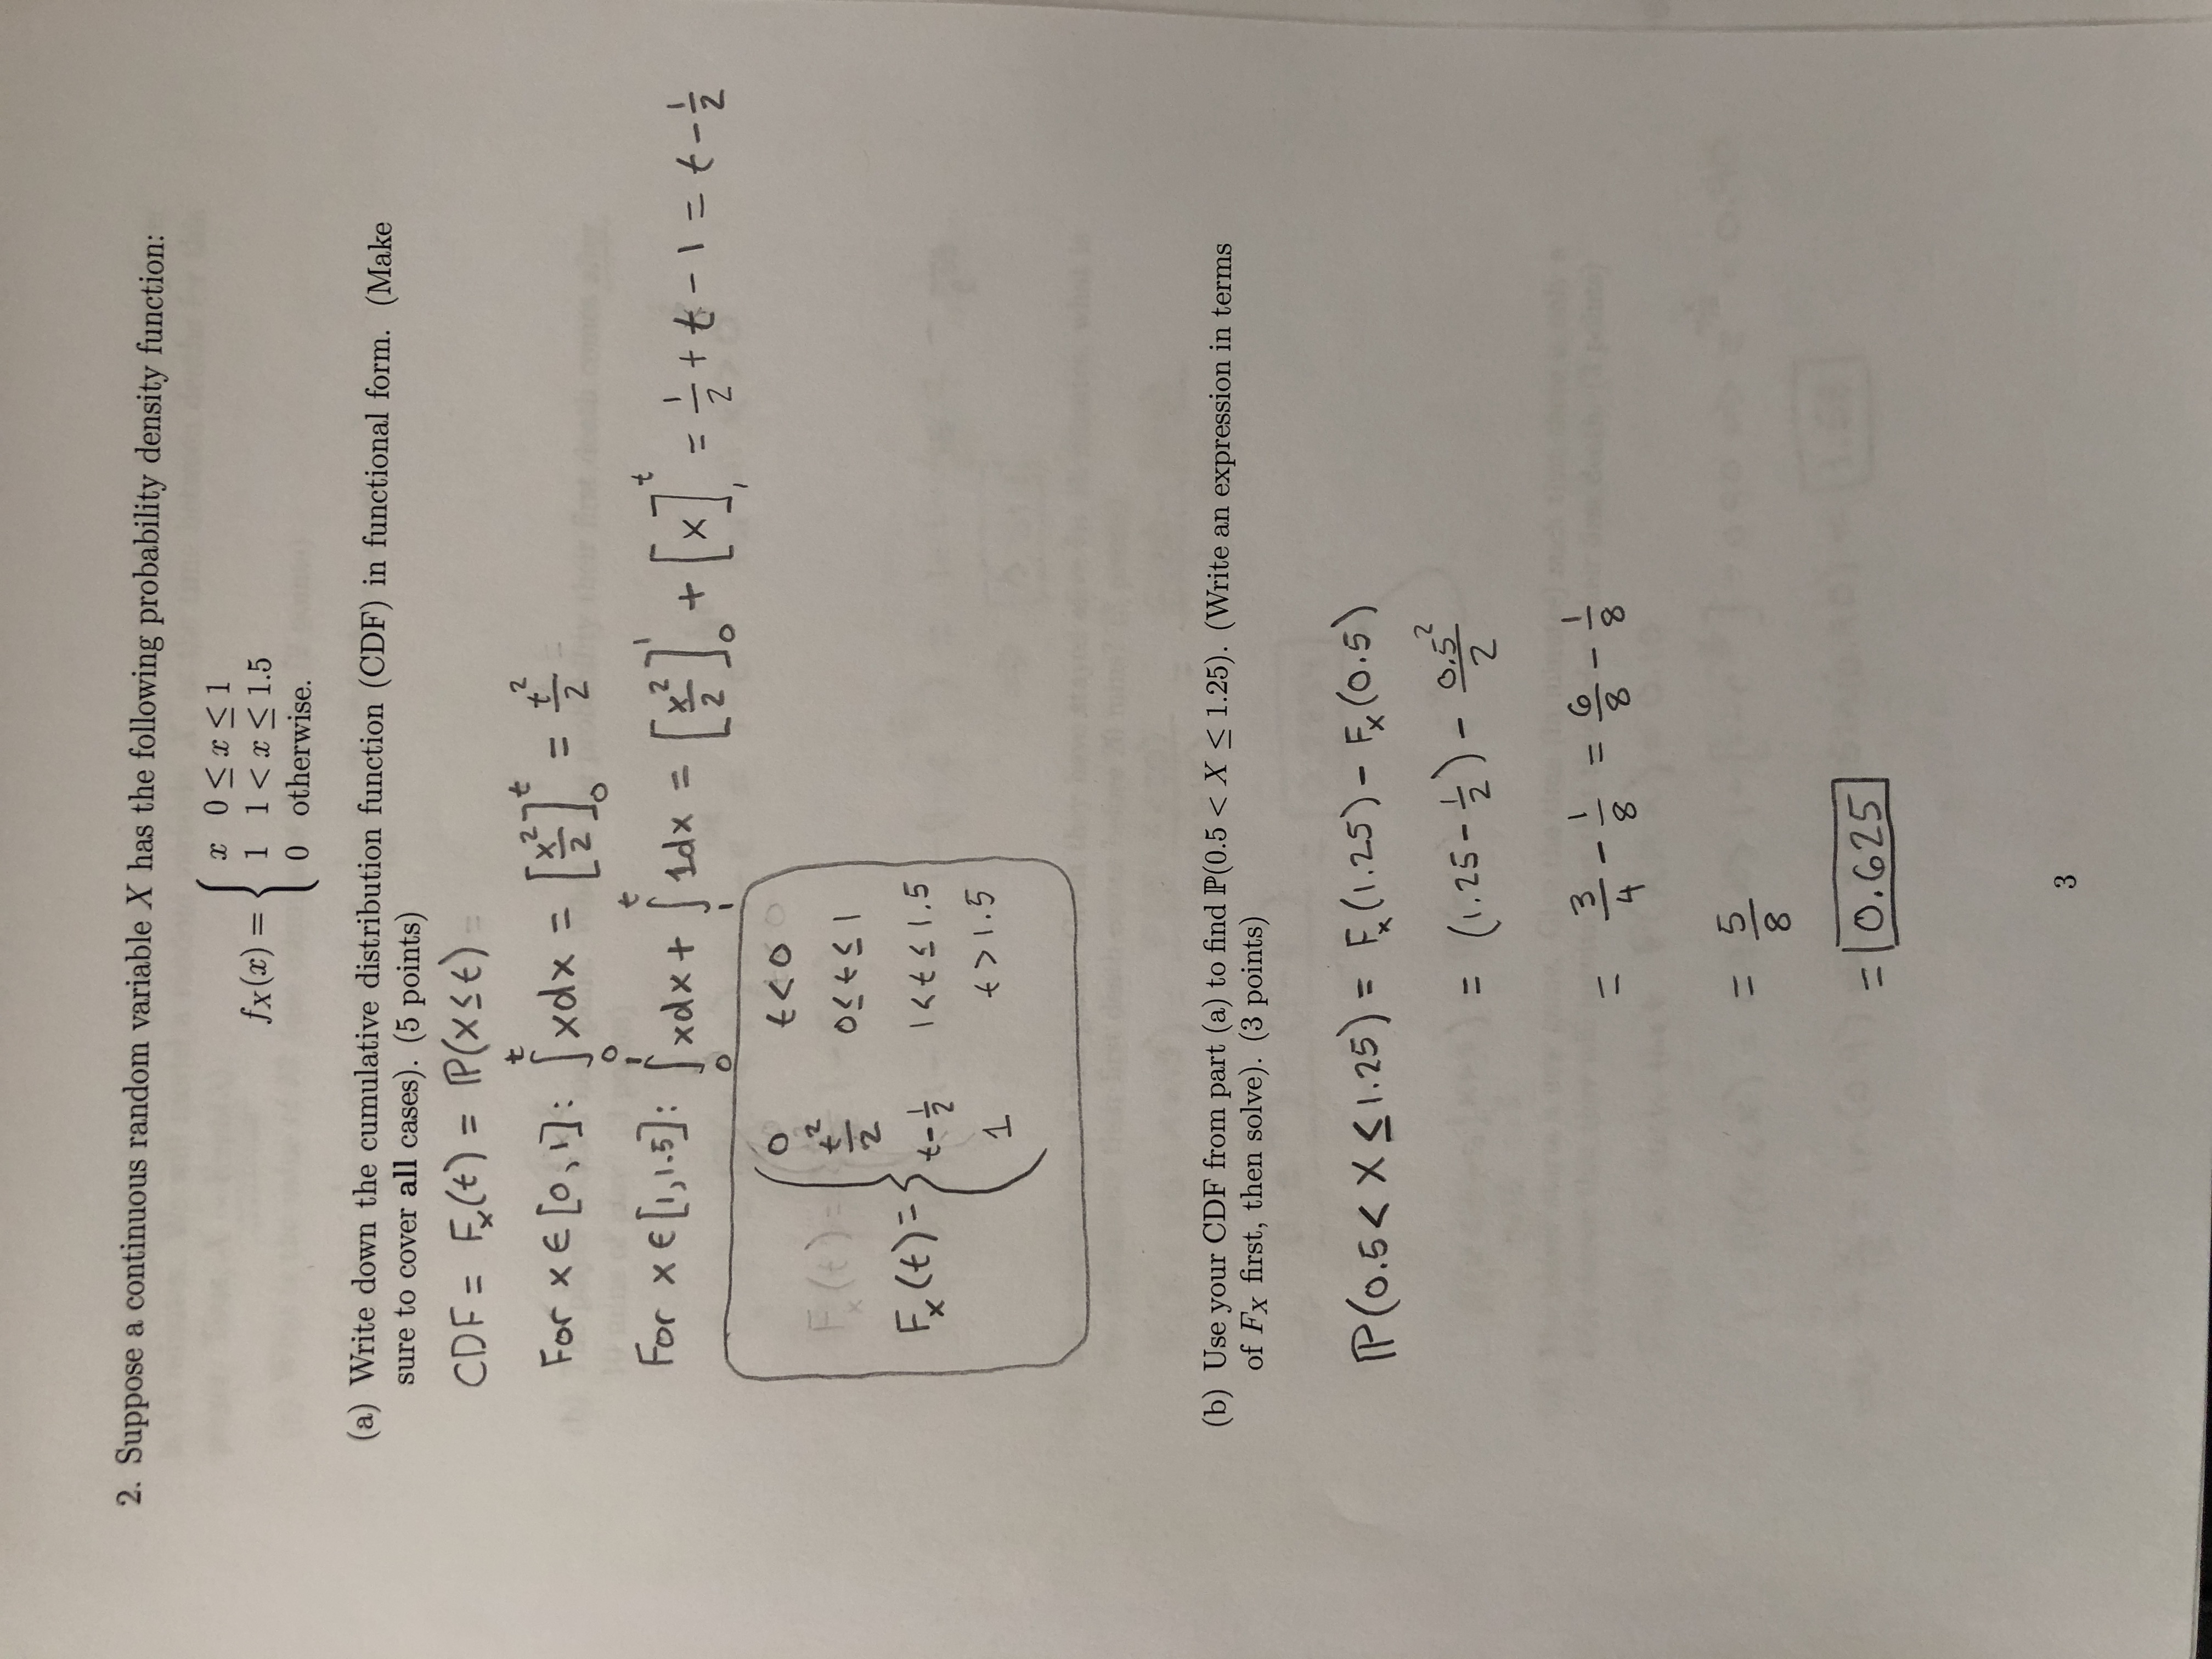 2. Suppose a continuous random variable X has the following probability density function:
f_X(x) = { x 0 ≤ x ≤ 1
1 1 < x ≤ 1.5
0 otherwise.
(a) Write down the cumulative distribution function (CDF) in functional form. (Make
sure to cover all cases). (5 points)
CDF = F_x(t) = ℙ(X ≤ t) =
For x ∈ [0, 1]: ∫_0^t xdx = [x²/2]_0^t = t²/2
For x ∈ [1,1.5]: ∫_0^1 xdx + ∫_1^t 1dx = [x²/2]_0^1 + [x]_1^t = 1/2 + t - 1 = t - 1/2
F_x(t) = { 0 t < 0
t²/2 0 ≤ t ≤ 1
t - 1/2 1 < t ≤ 1.5
1 t > 1.5
(b) Use your CDF from part (a) to find ℙ(0.5 < X ≤ 1.25). (Write an expression in terms
of F_X first, then solve). (3 points)
ℙ(0.5 < X ≤ 1.25) = F_x(1.25) - F_x(0.5)
= (1.25 - 1/2) - 0.5²/2
= 3/4 - 1/8 = 6/8 - 1/8
= 5/8
= 0.625
3